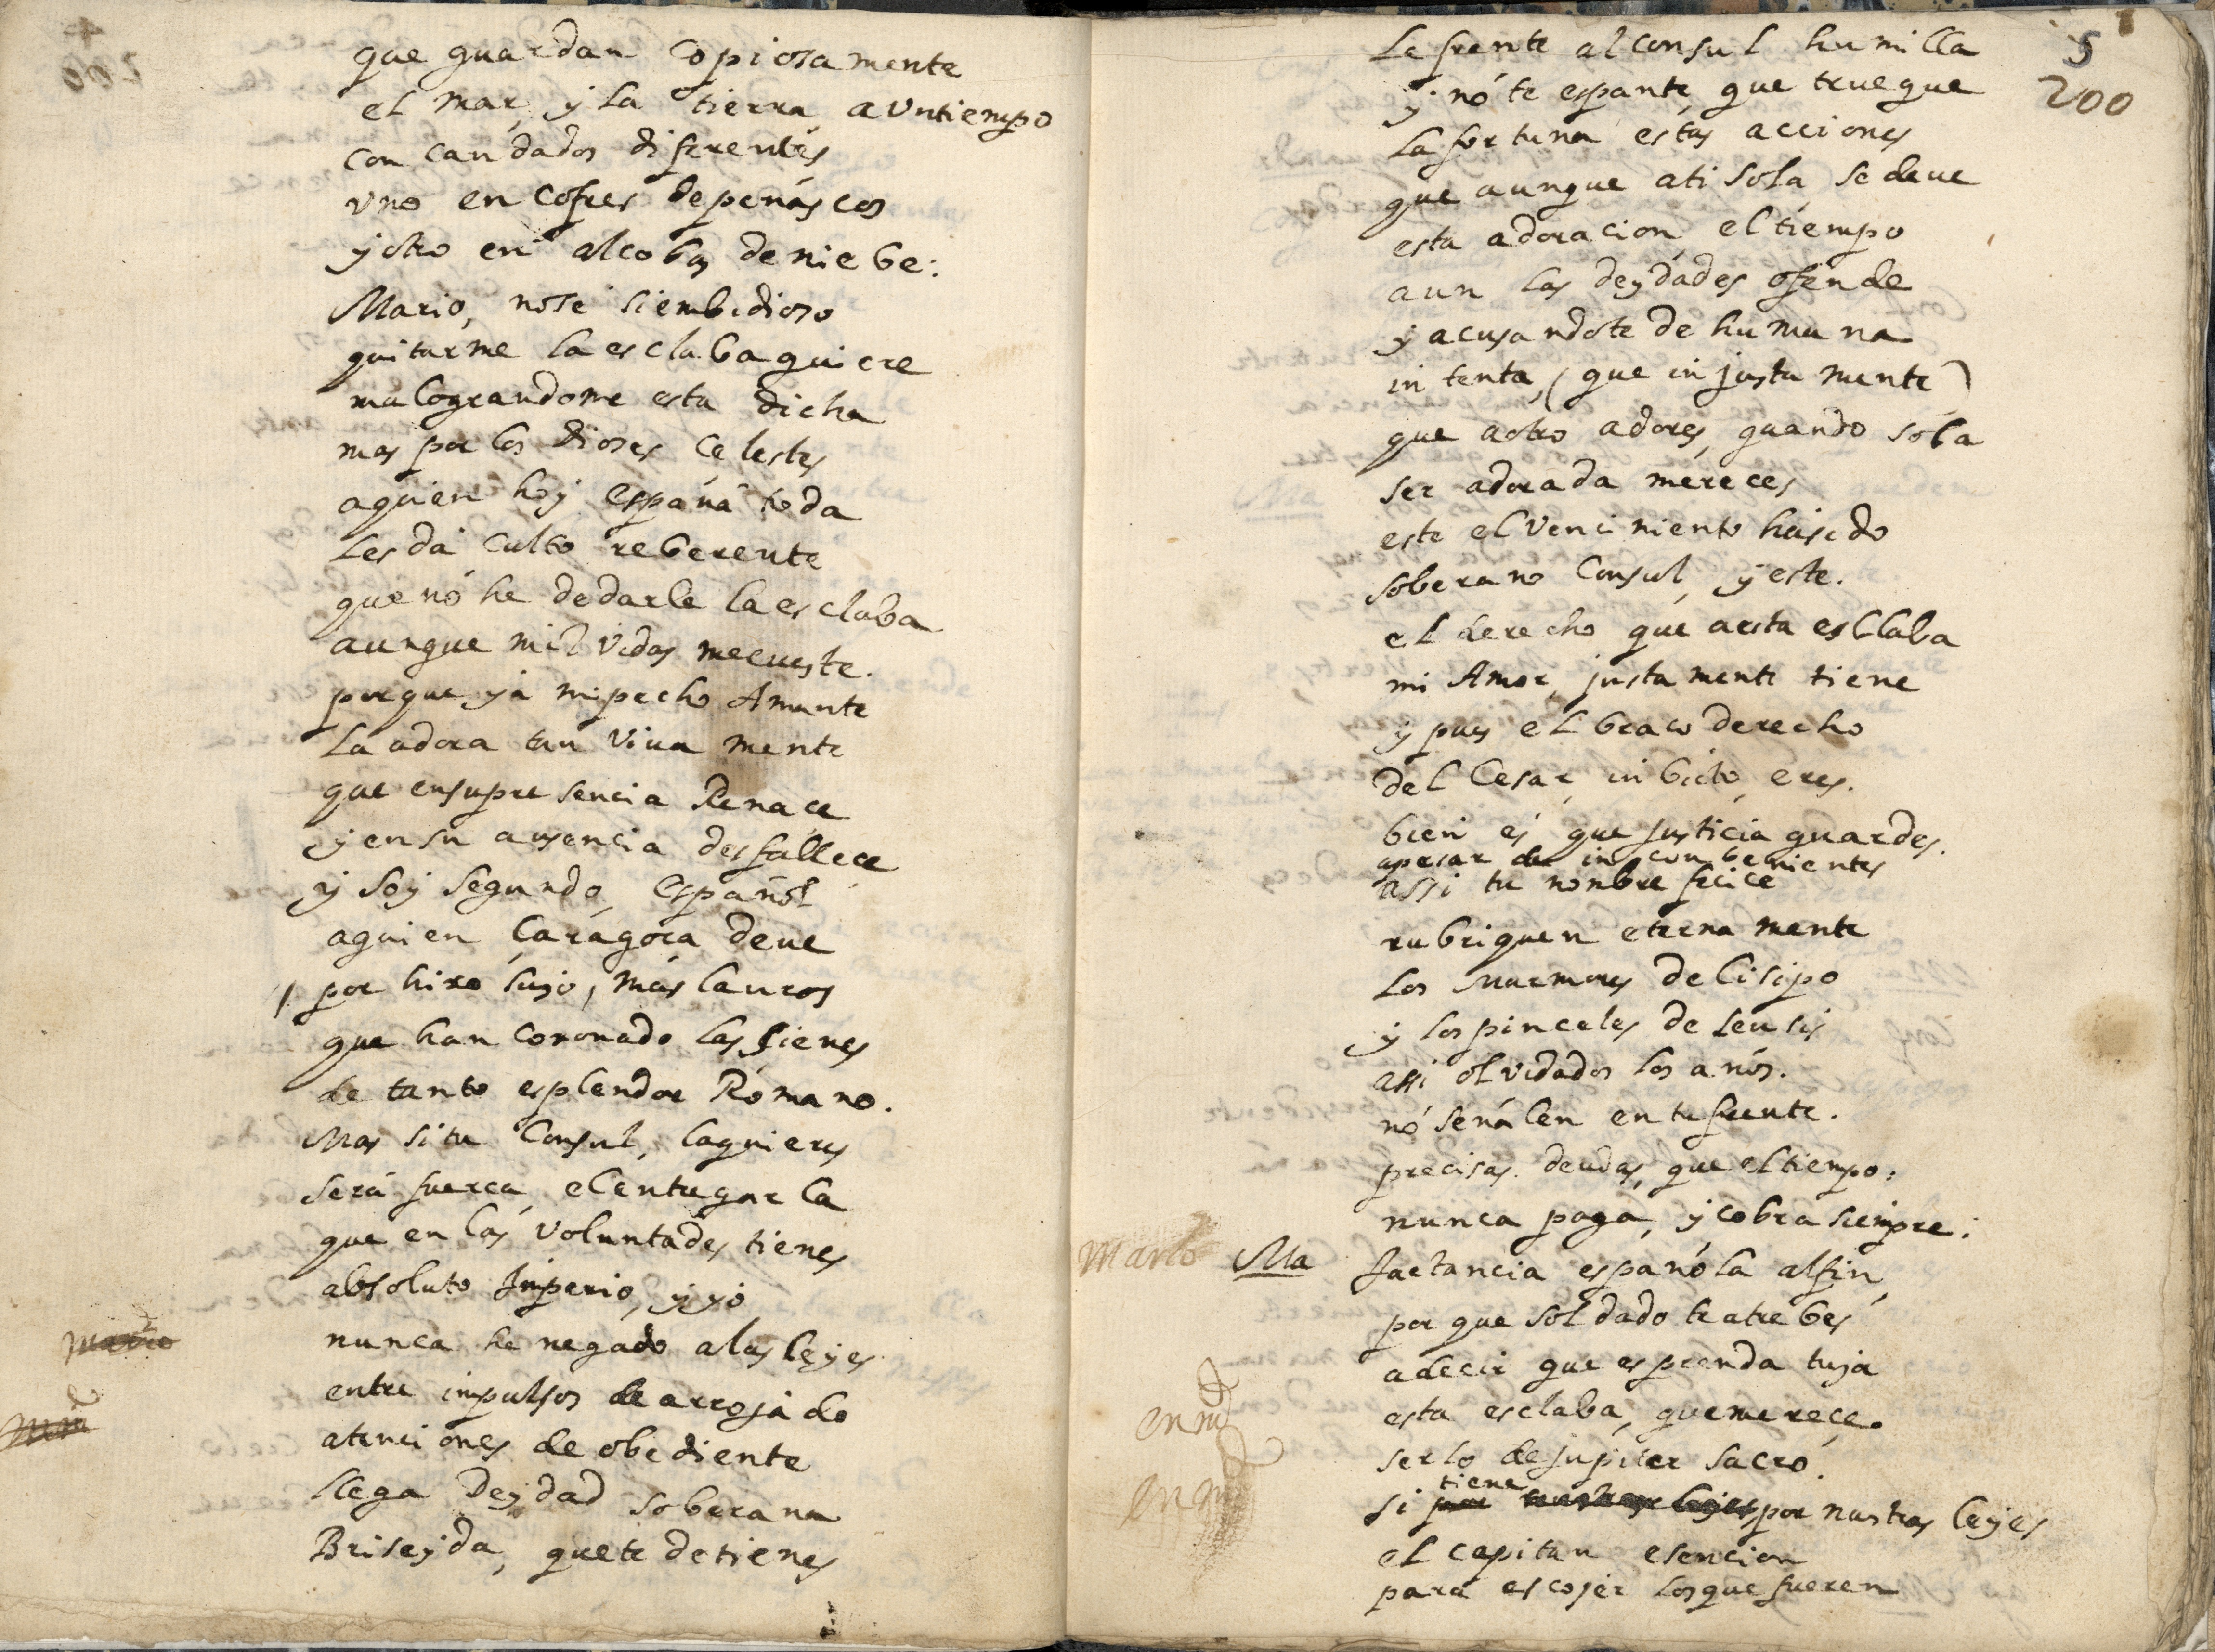 que guardan copiosamente
el mar, y la tierra avntiempo
con candados diferentes
vno en cofres depenáscos
y otro en alcobas deniebe:
Mario, nose siembidioso
quitarme laesclabaquiere
malograndome esta dicha
mas por los dioses Celestes
aquien hoy españa toda
les dá culto reberente
que nó he dedarle laesclaba
aunque mil vidas mecueste.
porque yá mipecho Amante
La adora tan viua mente
que ensupresencia Renace
y en su ausencia desfallece
y soy segundo, español
aquien, Caragoca deue
por hixo suyo, más lauros
que han coronado las sienes
de tanto esplendor Romano.
Mas si tu Consul, laquieres
será fuerca, elentregarla
que en las voluntades tienes
absoluto Imperio, y yó
nunca he negado alas leyes
entre impulsos de arrojado
atenciones de obediente
llega Deydad soberana
Briseyda, quete detienes
5
200
La frente alconsul humilla
y nó te espante, que trueque
la fortuna estas acciones
que aunque ati sola, se deue
esta adoracion, el tiempo
aun las deydades ofende
y acusandote de humana
intenta, (que injusta mente)
que aotro adores, quando sola
ser adorada mereces
este el vencimiento hasido
soberano Consul, y este.
el derecho que aesta esclaba
mi Amor, justamente tiene
y pues el braco derecho
del Cesar, inbicto, eres.
bien és que justicia guardes.
apesar de inconbenientes
assi tu nombre felice
rubriquen eternamente
los marmores de Lisipo
y los pinceles de seusis
assi olvidados los anós.
nó señálen en tu frente.
precisas. deudas, que eltiempo:
nunca paga, y cobra siempre:
Mario Ma Jactancia espanóla alfin,
por que soldado te atrebes
adecir que es prenda tuya
esta esclaba, quemerece.
serlo de jupiter sacro.
si tiene por nuestras leyes
el capitan esencion
para escojer losque fueren